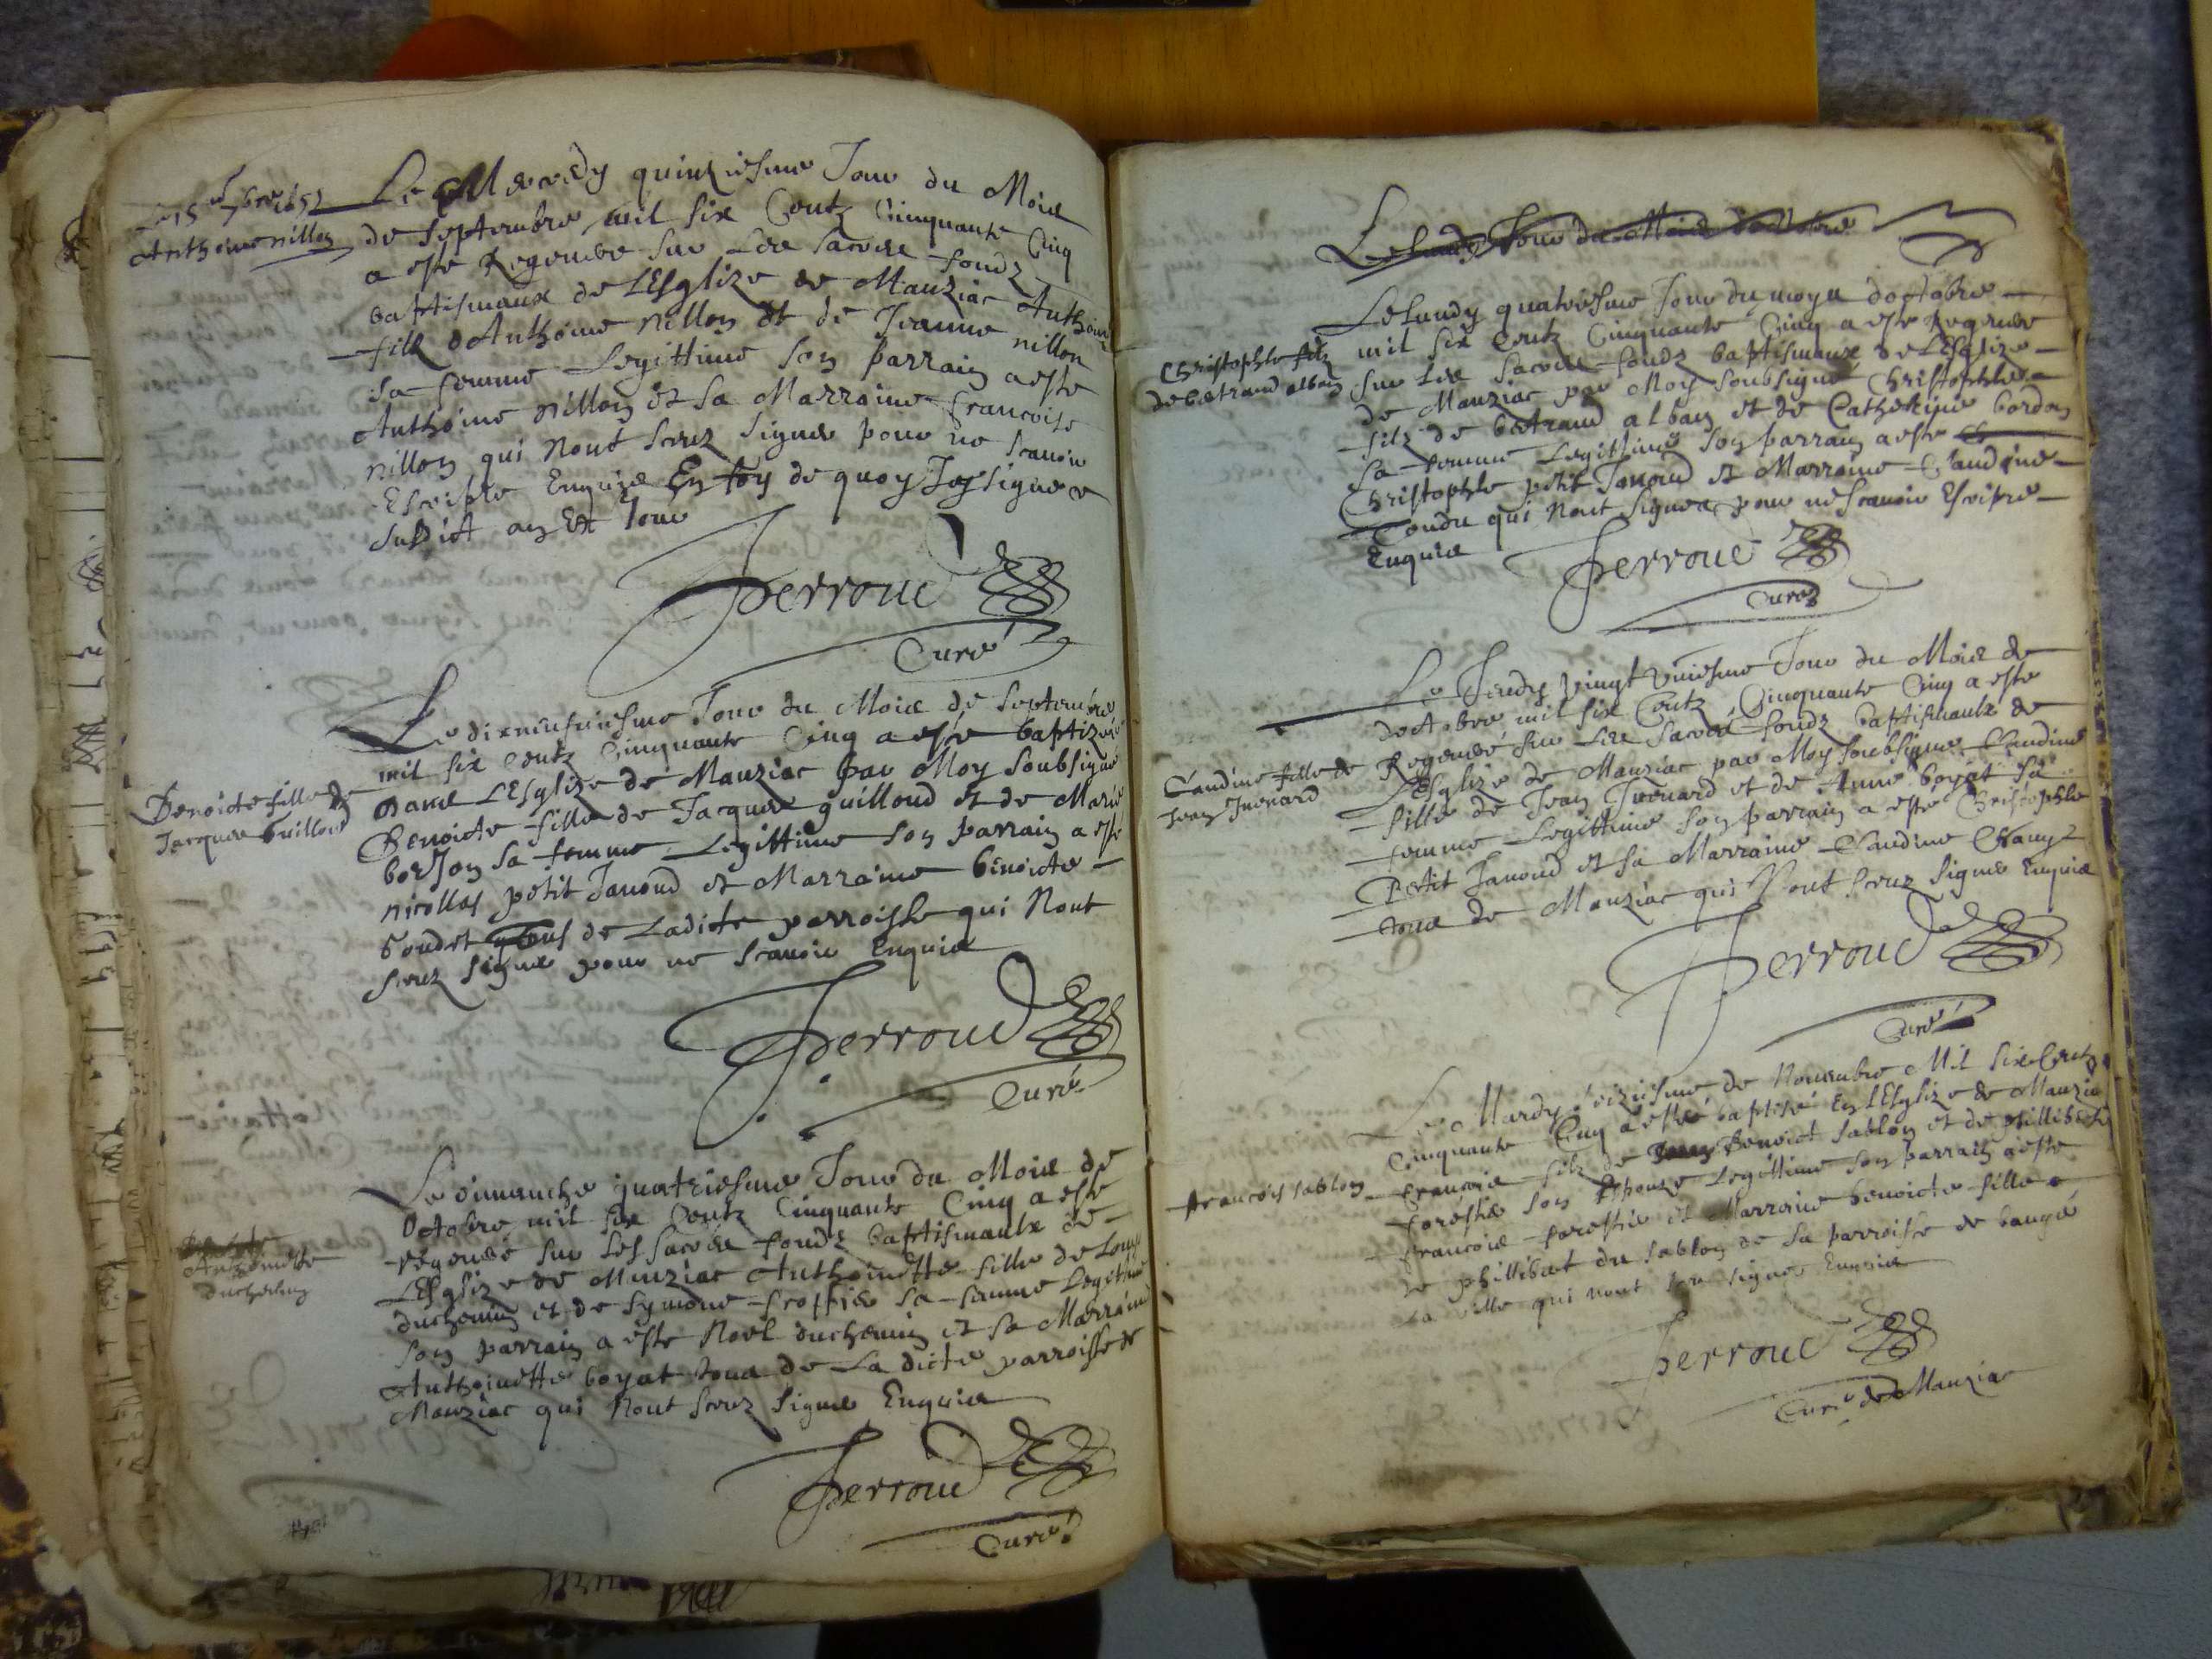 Le 15e 7bre 1655
Anthoine nillon
Le Mecredy quinziesme Jour du Mois
de Septembre mil six Centz Cinquante Cinq
a este Regeneré sur Les sacrés fondz
baptismaux de LEsglize de Manziac Anthoine
filz dAnthoine nillon Et de Jeanne nillon
sa femme Legittime son parrain a este
Anthoine nillon et sa Marraine francoise
nillon qui Nont sceuz signer pour ne scavoir
Escripre Enquis En foy de quoy Jay signé
susdict an Et Jour
Perroud
Curé
Benoicte fille de
Jacques Guilloud
Le dixneufviesme Jour du Mois de Septembre
mil six centz Cinquante Cinq a esté baptizée
dans LEsglize de Manziac par Moy soubsigné
Benoicte fille de Jacques guilloud et de Marie
boesson sa femme Legittime son parrain a esté
nicollas petit Janoud et Marraine benoicte
Goudet tous de Ladicte parroisse qui Nont
sceuz signer pour ne scavoir Enquis
Perroud
Curé
Anthoinette
duchemin
Le dimanche quatriesme Jour du Mois de
Octobre mil six Centz Cinquante Cinq a este
regeneré sur Les sacrés fondz baptismaulx de
LEsglize de Manziac Anthoinette fille de Louys
duchemin et de symone froppier sa femme Legittime
son parrain a esté Noel duchemin et sa Marraine
Anthoinette boyat tous de La dicte parroisse de
Manziac qui Nont sceuz signer Enquis
Perroud
Curé
Le Lundy Jour du Mois doctobre
Christophle filz
de bertrand alban
Le Lundy quatriesme Jour du moys doctobre
mil six centz Cinquante Cinq a este Regeneré
sur Les sacrés fondz baptismaux de LEsglize
de Manziac par Moy soubsigné Christophle
filz de bertrand alban et de Catherine bordon
sa femme Legittime son parrain a este
Christophle petit Janoud et Marraine Claudine
Tondu qui Nont signer pour ne scavoir Escripre
Enquis
Perroud
Curé
Claudine fille de
Jean Juenard
Le Jeudy vingt uniesme Jour du Mois de
doctobre mil six Centz Cinquante Cinq a este
Regeneré sur Les sacrés fondz baptismaulx de
LEsglize de Manziac par Moy soubsigné Claudine
fille de Jean Juenard et de Anne boyat sa
femme Legittime son parrain a esté Christophle
Petit Janoud et sa Marraine Claudine Chanut
tous de Manziac qui Nont sceuz signer Enquis
Perroud
Curé
francois sablon
Le Mardy seiziesme de Novembre Mil six Centz
Cinquante Cinq a esté baptisé En LEsglize de Manziac
francois filz de Benoict sablon et de philliberte
forestier son Espouze Legittime son parrain a este
francois forestier et Marraine benoicte fille
de phillibert du sablon de La parroisse de baugé
La ville qui nont sceu signer Enquis
Perroud
Curé de Manziac